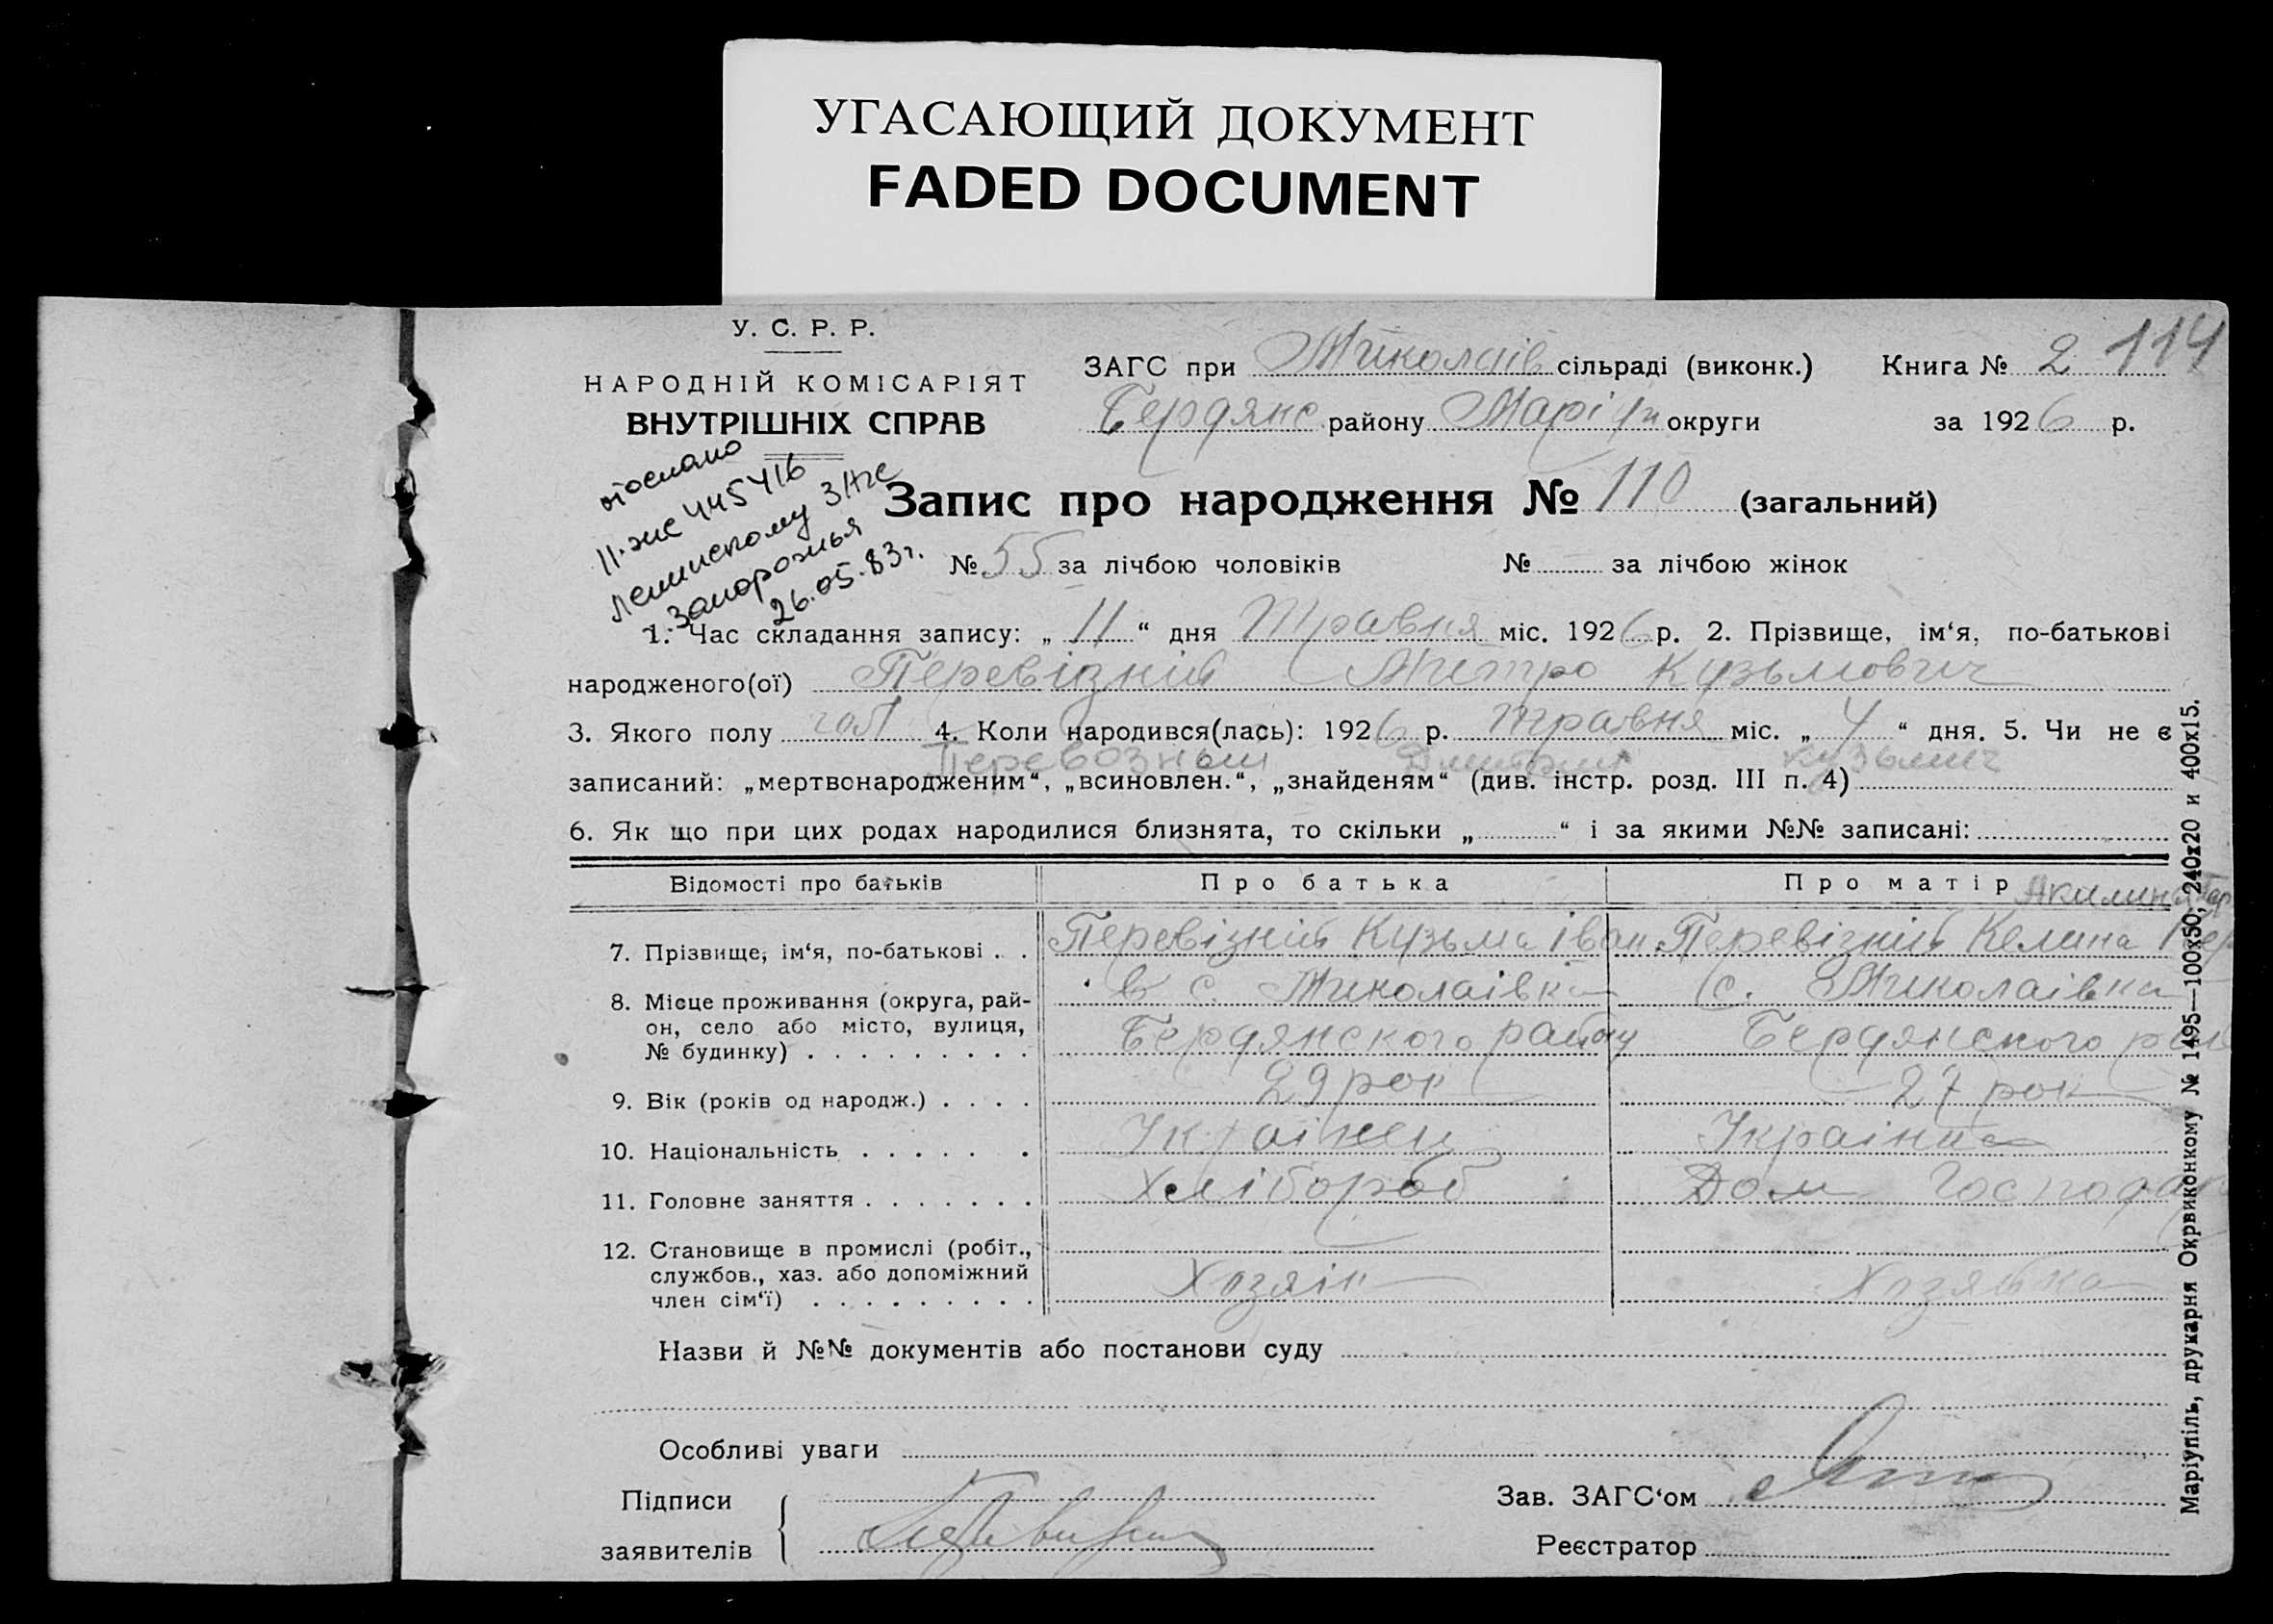 УГАСАЮЩИЙ ДОКУМЕНТ
FADED DOCUMENT
У. С. Р. Р.
НАРОДНІЙ КОМІСАРІЯТ
ВНУТРІШНІХ СПРАВ
ЗАГС при Миколаів сільраді (виконк.) Книга № 2 114
Бердянс району Маріуп округи за 1926 р.
отослано
II-жс 445416
Ленинскому ЗАГС
Запорожья
26.05.83г.
Запис про народження № 110 (загальний)
№ 55 за лічбою чоловіків № — за лічбою жінок
1. Час складання запису: „ 11 “ дня Травня міс. 1926 р. 2. Прізвище, ім‘я, по-батькові
народженого(ої) Перевізний Митро Кузьмович
3. Якого полу чол 4. Коли народився(лась): 1926 р. травня міс. „ 4 “ дня. 5. Чи не є
Перевозный Дмитрий Кузьмич
записаний: „мертвонародженим“, „всиновлен.“, „знайденям“ (див. інстр. розд. III п. 4)
6. Як що при цих родах народилися близнята, то скільки „ “ і за якими №№ записані:
Відомості про батьків Про батька Про матір Акилина
7. Прізвище, ім‘я, по-батькові . . Перевізний Кузьма Іван Перевізний Келина
8. Місце проживання (округа, рай- в с. Миколаівка с. Миколаівка
он, село або місто, вулиця, Бердянского району Бердянского
№ будинку)
9. Вік (років од народж.) . . . . 29 рок 27 рок
10. Національність . . . . . . Українец Українка
11. Головне заняття . . . . . . . Хлібороб Дом Господар
12. Становище в промислі (робіт.,
службов., хаз. або допоміжний Хозяін Хозяйка
член сім‘ї) . . . . . . . . .
Назви й №№ документів або постанови суду
Особливі уваги
Підписи Зав. ЗАГС‘ом
заявителів Реєстратор
Маріупіль, друкарня Окрвиконкому № 1495—100х50; 240х20 и 400х15.